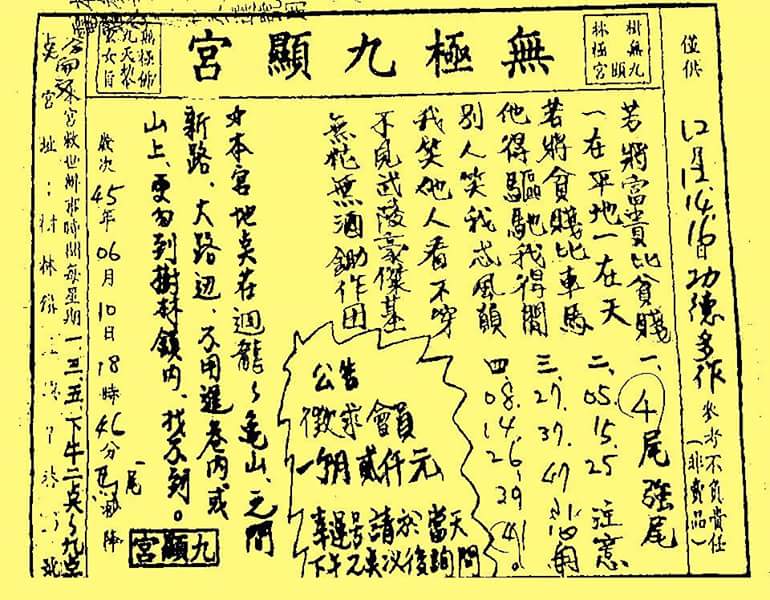 無極九顯宮
樹無九
林極顯
宮
無極佛
九天
玄女
僅供
12月12.14.16日功德多作
參考不負責任
(非賣品)
若將富貴比貧賤
一在平地一在天
若將貧賤比車馬
他得驅馳我得閒
別人笑我忒風顛
我笑他人看不穿
不見武陵豪傑墓
無花無酒鋤作田
一、4尾強尾
二、05.15.25注意
三、27.37.47
四、08.14.26.39.41。
公告
徵求會員
一個月貳仟元
幸運號請於當天
下午2点以後詢問
本宮地点在迴龍~龜山、之間
新路、大路辺、不用進巷內或
山上、更勿到樹林鎮內、找不到。
九顯宮
歲次45年06月10日18時46分
宮救世辦事時間每星期一三五、下午二点~九点
宮址：樹林鎮